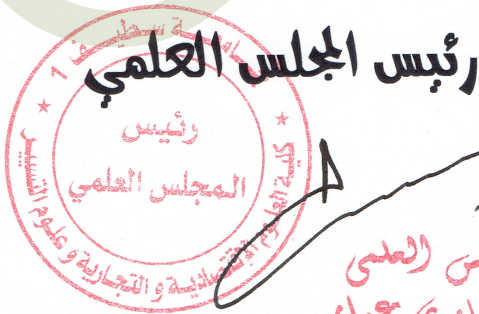 رئيس المجلس العلمي
جامعة سطيف 1
رئيس
المجلس العلمي
كلية العلوم الاقتصادية و التجارية و علوم التسيير
العلمي